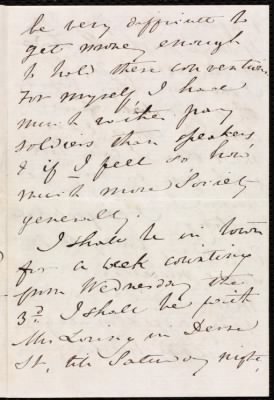 be very difficult to
get money enough
to hold these conventions.
For myself I have
much rather pay
soldiers than speakers
& if I feel so how
much more Society
generally.
I shall be in town
for a week counting
from Wednesday the
3d. I shall be with
Mrs Loring in
St, till Saturday night,